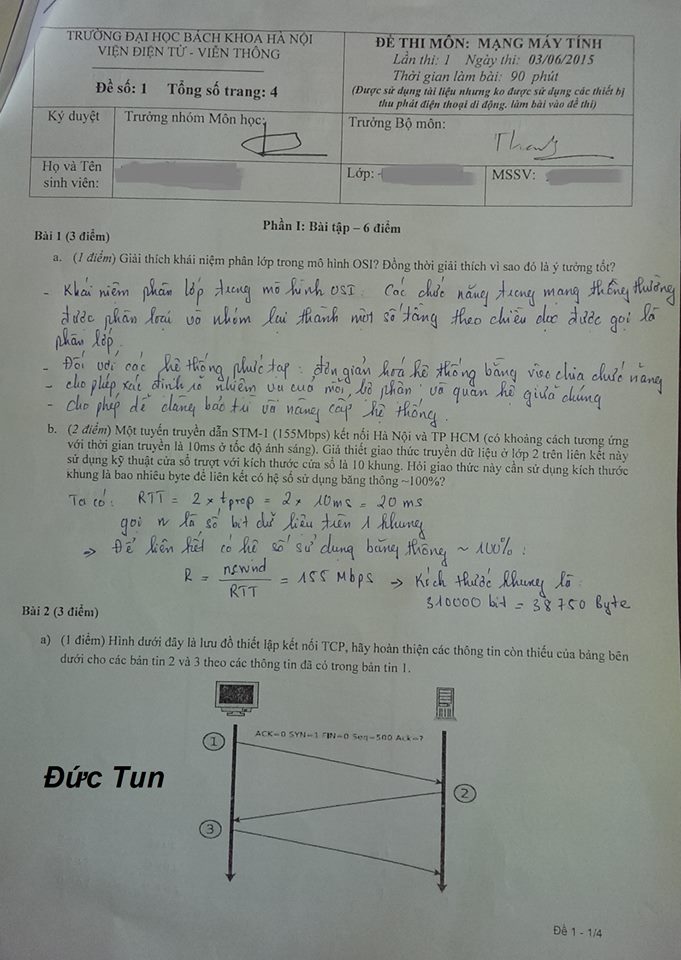 TRƯỜNG ĐẠI HỌC BÁCH KHOA HÀ NỘI
VIỆN ĐIỆN TỬ - VIỄN THÔNG
Đề số: 1 Tổng số trang: 4
ĐỀ THI MÔN: MẠNG MÁY TÍNH
Lần thi: 1 Ngày thi: 03/06/2015
Thời gian làm bài: 90 phút
(Được sử dụng tài liệu nhưng ko được sử dụng các thiết bị
thu phát điện thoại di động. làm bài vào đề thi)
Ký duyệt
Trưởng nhóm Môn học:
Trưởng Bộ môn:
Họ và Tên
sinh viên:
Lớp:
MSSV:
Phần I: Bài tập – 6 điểm
Bài 1 (3 điểm)
a. (1 điểm) Giải thích khái niệm phân lớp trong mô hình OSI? Đồng thời giải thích vì sao đó là ý tưởng tốt?
- Khái niệm phân lớp trong mô hình OSI: Các chức năng trong mạng thông thường
được phân loại và nhóm lại thành một số tầng theo chiều dọc được gọi là
phân lớp.
- Đối với các hệ thống phức tạp: đơn giản hoá hệ thống bằng việc chia chức năng
- cho phép xác định rõ nhiệm vụ của mỗi bộ phận và quan hệ giữa chúng
- cho phép dễ dàng bảo trì và nâng cấp hệ thống.
b. (2 điểm) Một tuyến truyền dẫn STM-1 (155Mbps) kết nối Hà Nội và TP HCM (có khoảng cách tương ứng
với thời gian truyền là 10ms ở tốc độ ánh sáng). Giả thiết giao thức truyền dữ liệu ở lớp 2 trên liên kết này
sử dụng kỹ thuật cửa sổ trượt với kích thước cửa sổ là 10 khung. Hỏi giao thức này cần sử dụng kích thước
khung là bao nhiêu byte để liên kết có hệ số sử dụng băng thông ~100%?
Ta có: RTT = 2 × tprop = 2 × 10ms = 20 ms
gọi n là số bit dữ liệu trên 1 khung
⇒ Để liên kết có hệ số sử dụng băng thông ~ 100%:
R = nswnd / RTT = 155 Mbps ⇒ Kích thước khung là:
310000 bit = 38750 Byte
Bài 2 (3 điểm)
a) (1 điểm) Hình dưới đây là lưu đồ thiết lập kết nối TCP, hãy hoàn thiện các thông tin còn thiếu của bảng bên
dưới cho các bản tin 2 và 3 theo các thông tin đã có trong bản tin 1.
ACK=0 SYN=1 FIN=0 Seq=500 Ack=?
1
2
3
Đức Tun
Đề 1 - 1/4